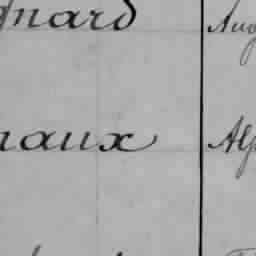 gnard Aug
naux Alp